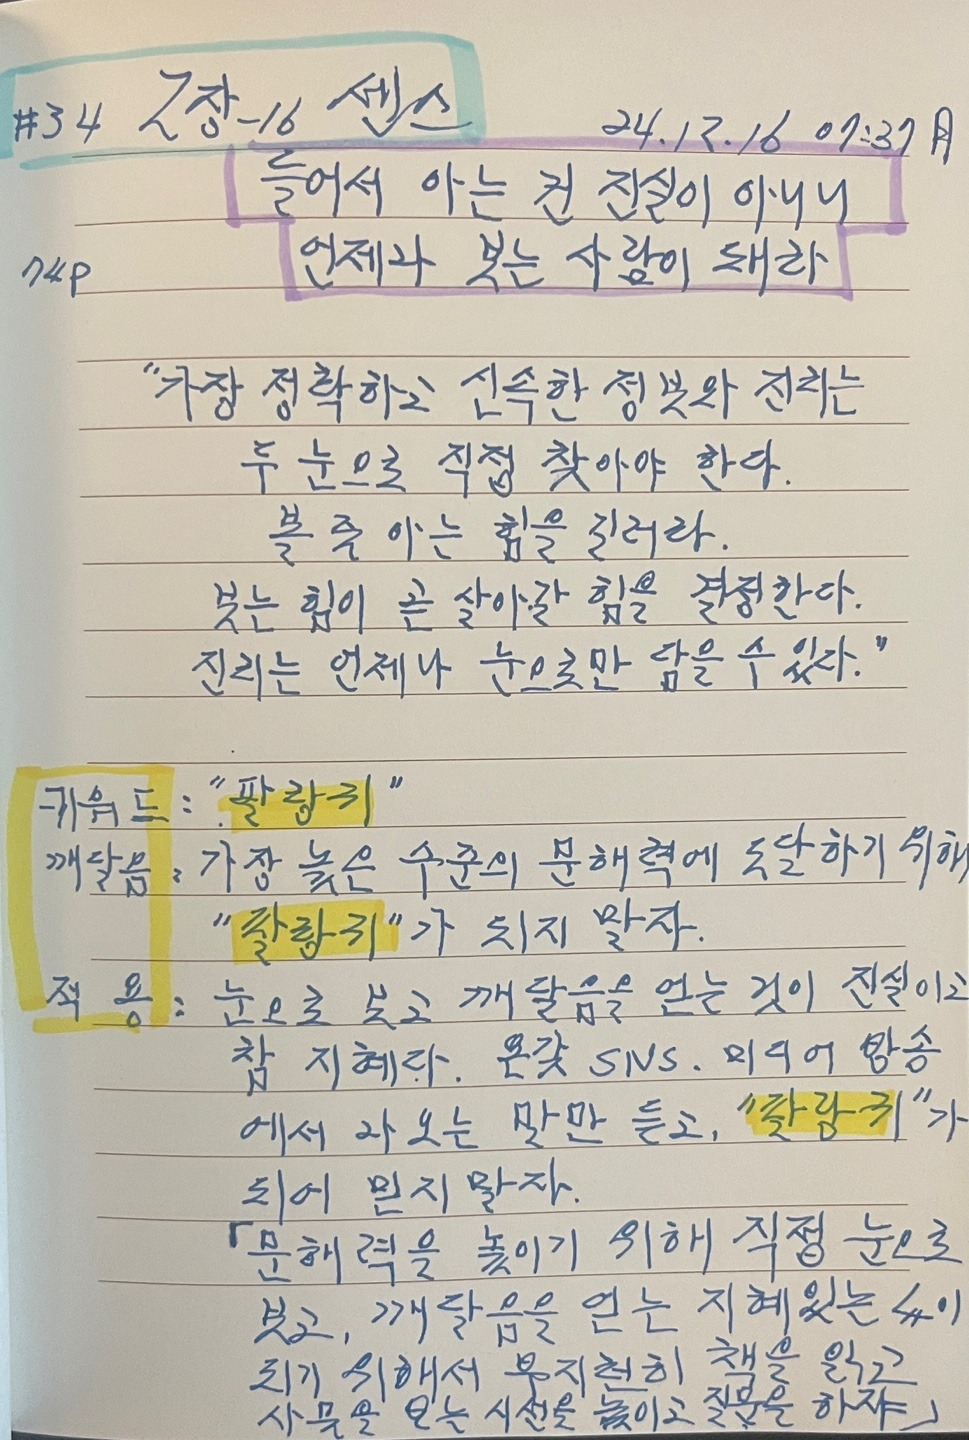 #34 2장-16 센스
24.12.16 07:37 月
들어서 아는 건 진실이 아니니
74p 언제나 보는 사람이 돼라
"가장 정확하고 신속한 정보와 진리는
두 눈으로 직접 찾아야 한다.
볼 줄 아는 힘을 길러라.
보는 힘이 곧 살아갈 힘을 결정한다.
진리는 언제나 눈으로만 담을 수 있다."
키워드 : "팔랑귀"
깨달음 : 가장 높은 수준의 문해력에 도달하기 위해
"팔랑귀"가 되지 말자.
적용 : 눈으로 보고 깨달음을 얻는 것이 진실이고
참 지혜다. 온갖 SNS. 미디어 방송
에서 나오는 말만 듣고, "팔랑귀"가
되어 믿지 말자.
「문해력을 높이기 위해 직접 눈으로
보고, 깨달음을 얻는 지혜있는 人이
되기 위해서 부지런히 책을 읽고
사물을 보는 시선을 높이고 질문을 하자」